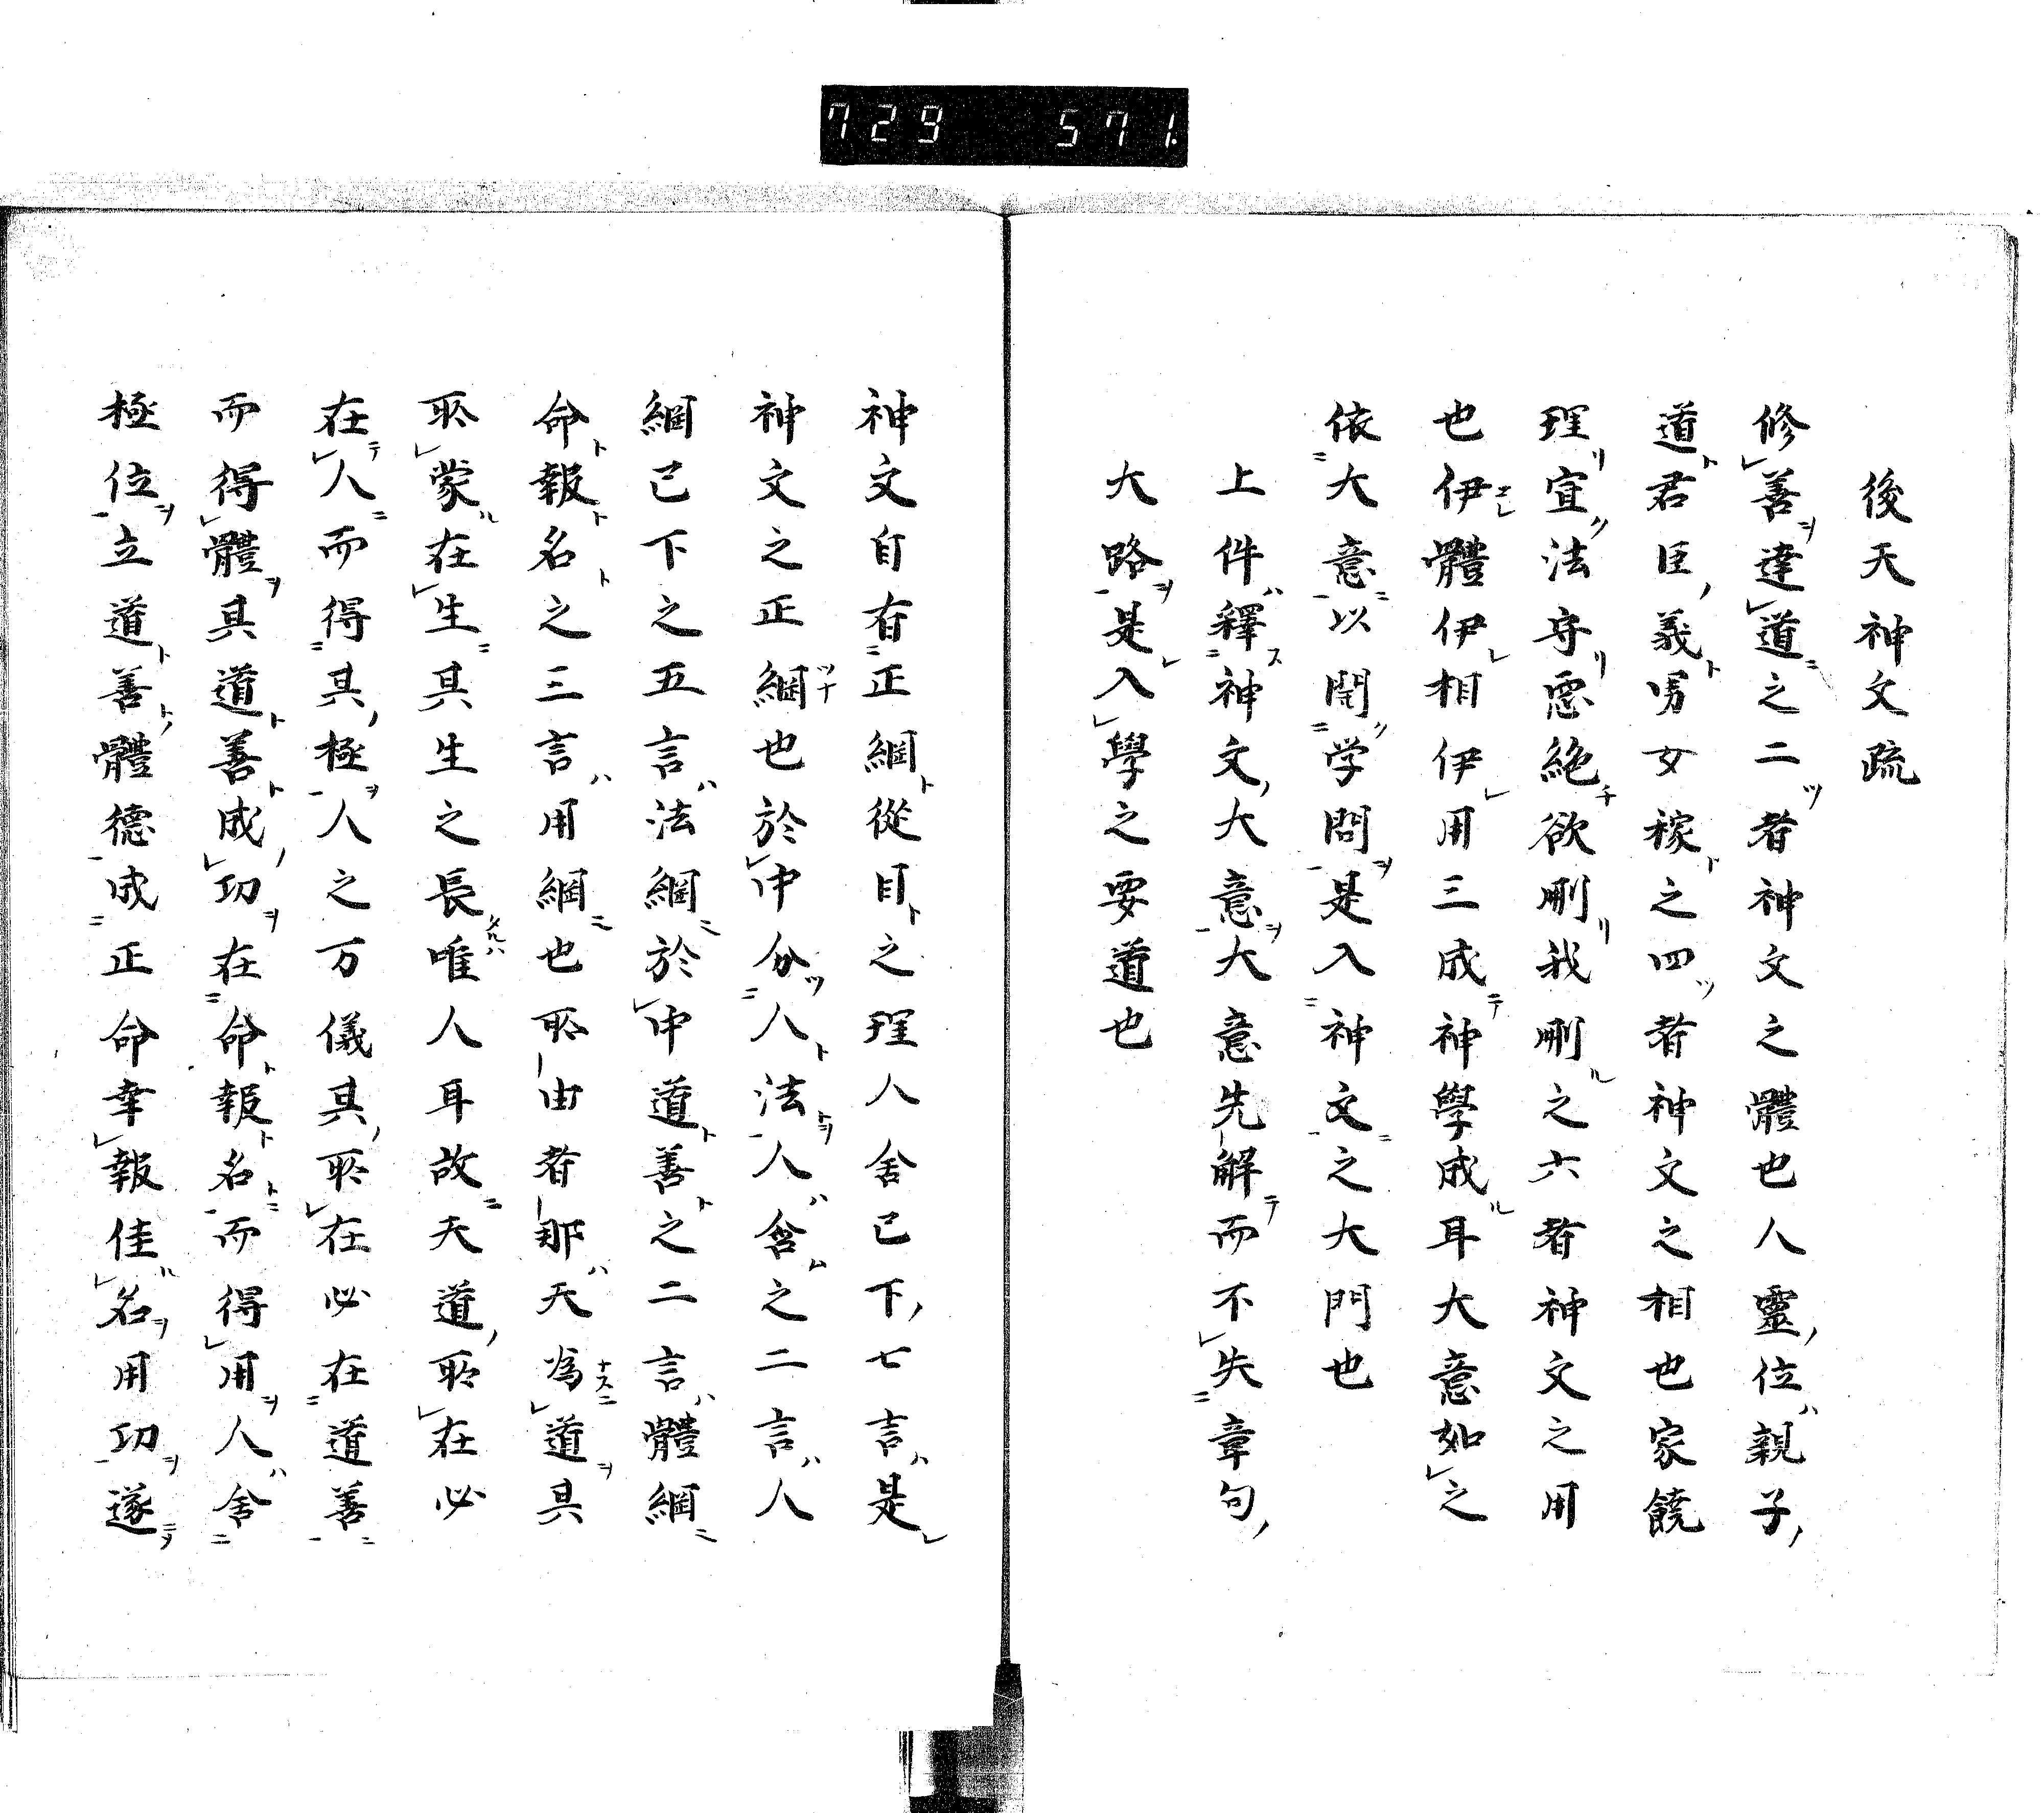 729 571
後天神文疏
修善達道之二者神文之體也人靈位親子
道君臣義男女稼之四者神文之相也家饒
理宜法守惡絶欲刪我刪之六者神文之用
也伊體伊相伊用三成神學成耳大意如之
依大意以開学問是入神文之大門也
上件釋神文大意大意先解而不失章句
大路是入學之要道也
神文自有正綱從目之理人舍已下七言是
神文之正綱也於中分人法人含之二言人
綱已下之五言法綱於中道善之二言體綱
命報名之三言用綱也所由者那天為道具
所蒙在生具生之長唯人耳故天道所在必
在人而得其極人之万儀其所在必在道善
而得體其道善成功在命報名而得用人舍
極位立道善體德成正命幸報佳名用功遂